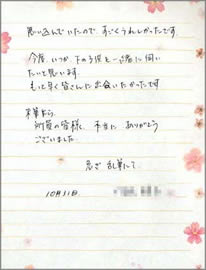 思い込んでいたので、すごくうれしかったです。
今度、いつか下の子供と一緒に伺い
たいと思います。
もっと早く皆さんに出会いたかったです
末筆ながら
の皆様、本当に ありがとう
ございました。
急ぎ 乱筆にて
10月31日